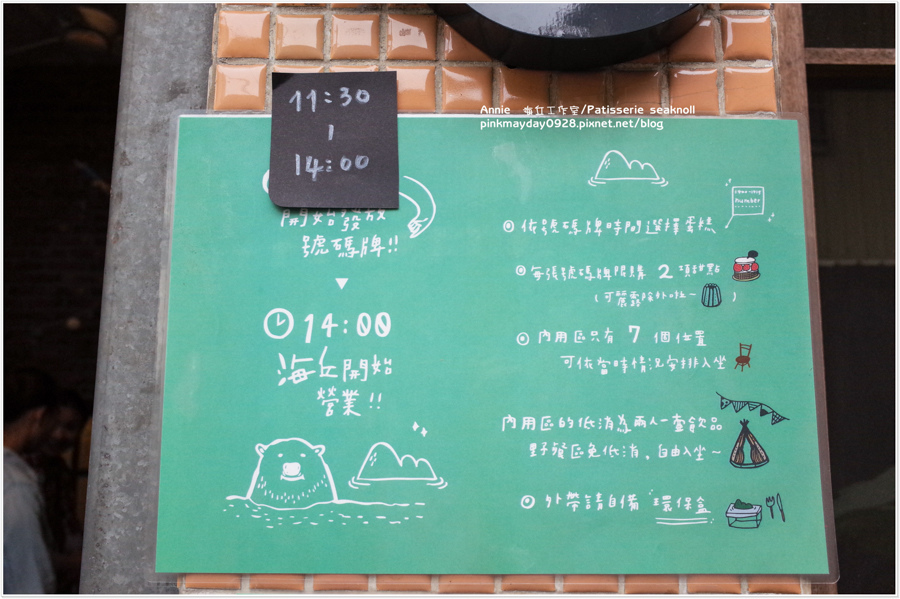 11:30
|
14:00
開始發放
號碼牌!!
14:00
海丘開始
營業!!
Annie
海丘工作室/Patisserie seaknoll
pinkmayday0928.pixnet.net/blog
number
依號碼牌時間選擇蛋糕
每張號碼牌限購 2 項甜點
(可麗露除外啦~ )
內用區只有 7 個位置
可依當時情況安排入坐
內用區的低消為兩人一壺飲品
野餐區免低消,自由入坐~
外帶請自備 環保盒